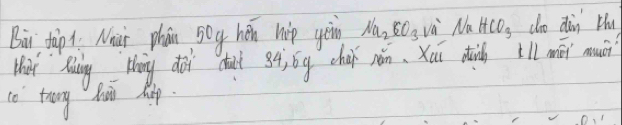 Bài tập 1: Nhiệt phân 50g hỗn hợp gồm Na2CO3 và NaHCO3 cho đến khi
khối lượng không đổi được 34,5g chất rắn. Xác định % mỗi muối
có trong hỗn hợp.